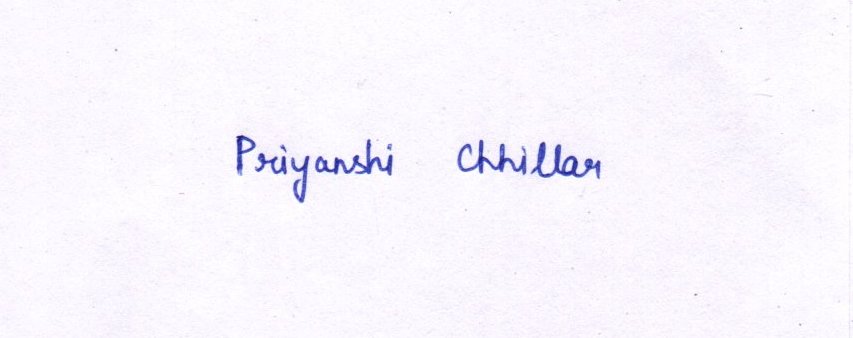 Priyanshi Chhillar